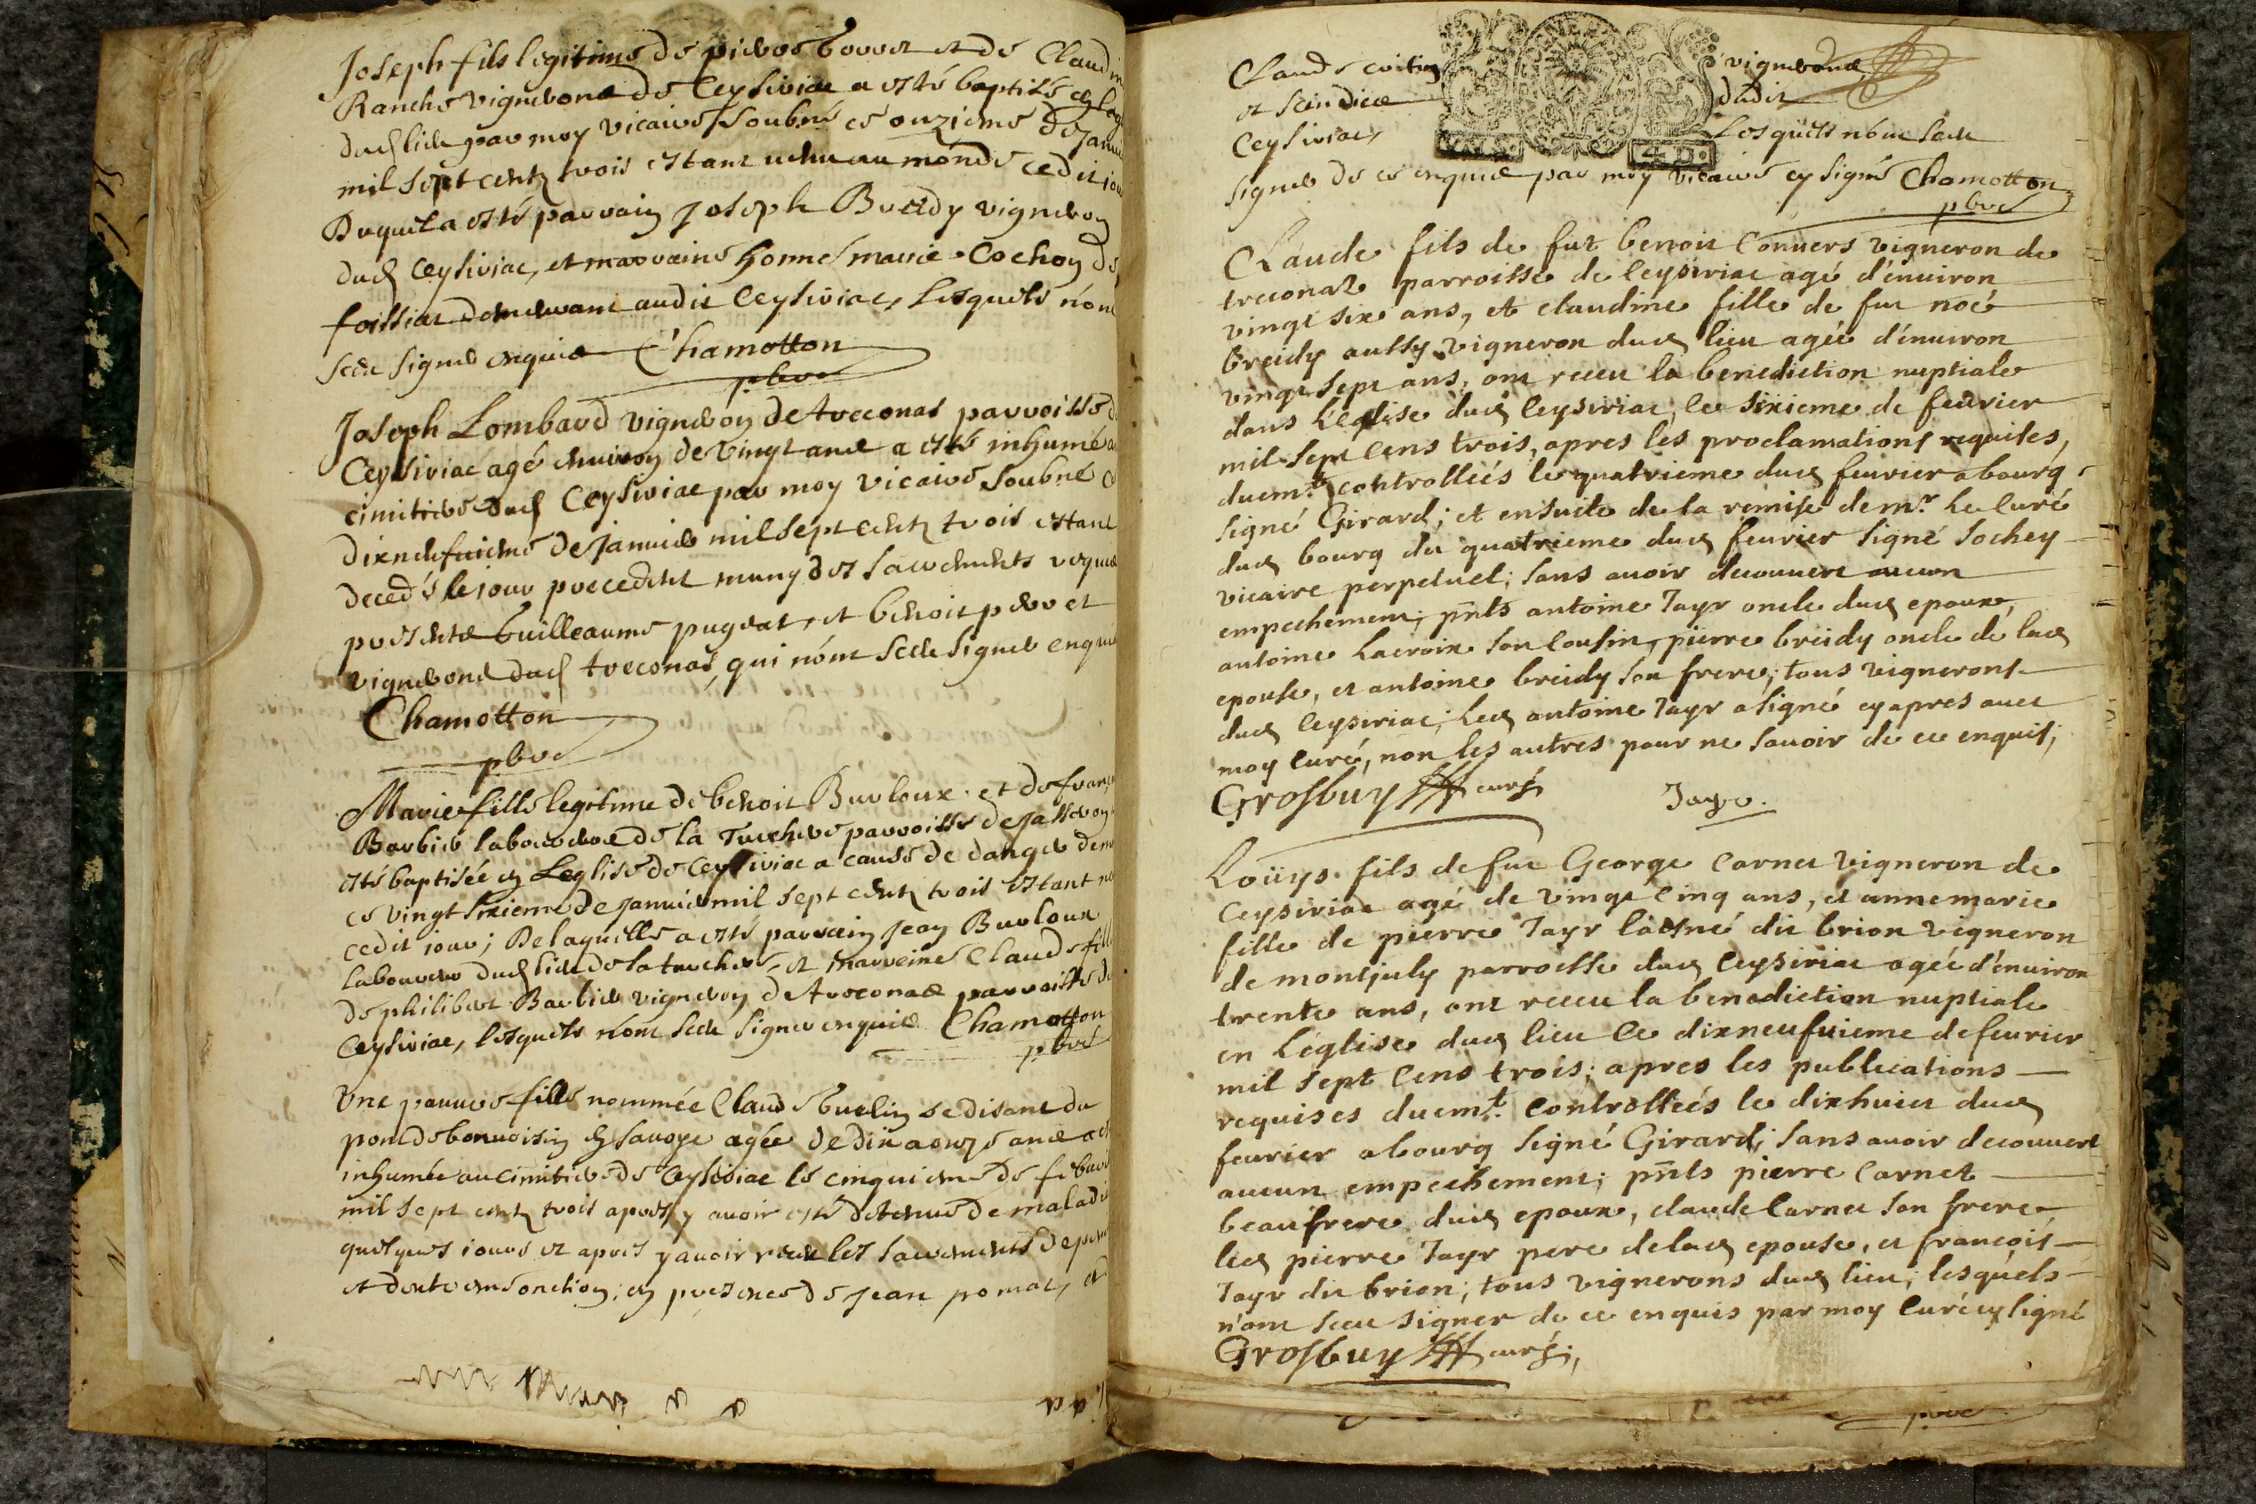 Joseph fils legitime de pierre bovet et de Claudine
Ranche vignerons de Ceysiriac a esté baptisé en leg
dud lieu par moy vicaire soubné ce onzieme de Janvi
mil sept cents trois estant venu au monde cedit jour
Duquel a esté parrain Joseph Breidy vigneron
dud Ceysiriac, et marraine honne marie Cochon de
foissiat demeurant audit Ceysiriac, lesquels n'ont
sceu signer enquis Chamotton
pbre
Joseph Lombard vigneron de treconas parroisse d
Ceysiriac agé environ de vingt ans a esté inhumé a
cimitiere dud Ceysiriac par moy vicaire soubné c
dixneufvieme de Janvier mil sept cents trois estant
decedé le jour precedent muny des sacrements requis
presents Guilleaume pugeat, et benoit perret
vignerons dud treconas, qui n'ont sceu signer enquis
Chamotton
pbre
Marie fille legitime de benoit Burloux et de franç
Barbier laboureurs de la Teuchere parroisse de Jasseron
esté baptisée en Leglise de Ceysiriac a cause de danger de m
ce vingt sixieme de Janvier mil sept cents trois estant n
cedit jour; De laquelle a esté parrain Jean Burloux
laboureur dud lieu de la teuchere, et marreine Claude fille
de philibert Barbier vigneron de treconas parroisse de
Ceysiriac, lesquels n'ont sceu signer enquis Chamotton
pbre
Une pauvre fille nommée Claude buelin se disant du
pont de bonvoisin en savoye agée de dix a onze ans a es
inhumée au cimitiere de Ceysiriac le cinquieme de febvri
mil sept cents trois apres y avoir esté detenue de maladie
quelques jours et apres y avoir receu les sacrements de peni
et dextreme onction, en presence de Jean pomat, et
Claude vignerons
et scindics dudit
Ceysiriac, Lesquels n'ont sceu
signer de ce enquis par moy vicaire cy signé Chamotton
pbre
Claude fils de fut benoit Convers vigneron de
treconaz parroisse de Ceysiriac agé d'environ
vingt six ans, et claudine fille de fut noé
breidy aussy vigneron dud lieu agée d'environ
vingt sept ans, ont receu la benediction nuptiale
dans l'eglise dud Ceysiriac, le sixieme de feuvrier
mil sept cens trois, apres les proclamations requises,
duemt controllées le quatrieme dud feuvrier a bourg
signé Girard; et ensuite de la remise de mr. le Curé
dud bourg du quatrieme dud feuvrier signé sochey
vicaire perpetuel; sans avoir decouvert aucun
empechement; pnts antoine Tayr oncle dud epoux,
antoine Lacroix son cousin, pierre breidy oncle de lad
epouse, et antoine breidy son frere; tous vignerons
dud Ceysiriac; led antoine Tayr a signé cy apres avec
moy curé, non les autres pour ne savoir de ce enquis;
Grosbuy curé Tayr.
Loüys fils de fut George Cornet vigneron de
Ceysiriac agé de vingt cinq ans, et anne marie
fille de pierre Tayr l'aisné du brion vigneron
de montjuly parroisse dud Ceysiriac agée d'environ
trente ans, ont receu la benediction nuptiale
en L'eglise dud lieu le dixneufvieme de feuvrier
mil sept cens trois; apres les publications
requises duemt. controllées le dixhuict dud
feuvrier a bourg signé Girard; sans avoir decouvert
aucun empechement; pnts pierre Carnet
beaufrere dud epoux, claude Carnet son frere
led pierre Tayr pere de lad epouse, et françois
Tayr du brion; tous vignerons dud lieu; lesquels
n'ont sceu signer de ce enquis par moy Curé cy signé
Grosbuy curé;